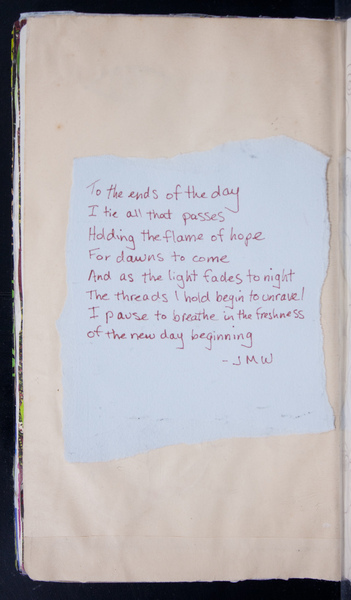 To the ends of the day
I tie all that passes
Holding the flame of hope
For dawns to come
And as the light fades to night
The threads I hold begin to unravel
I pause to breathe in the freshness
of the new day beginning
- J M W